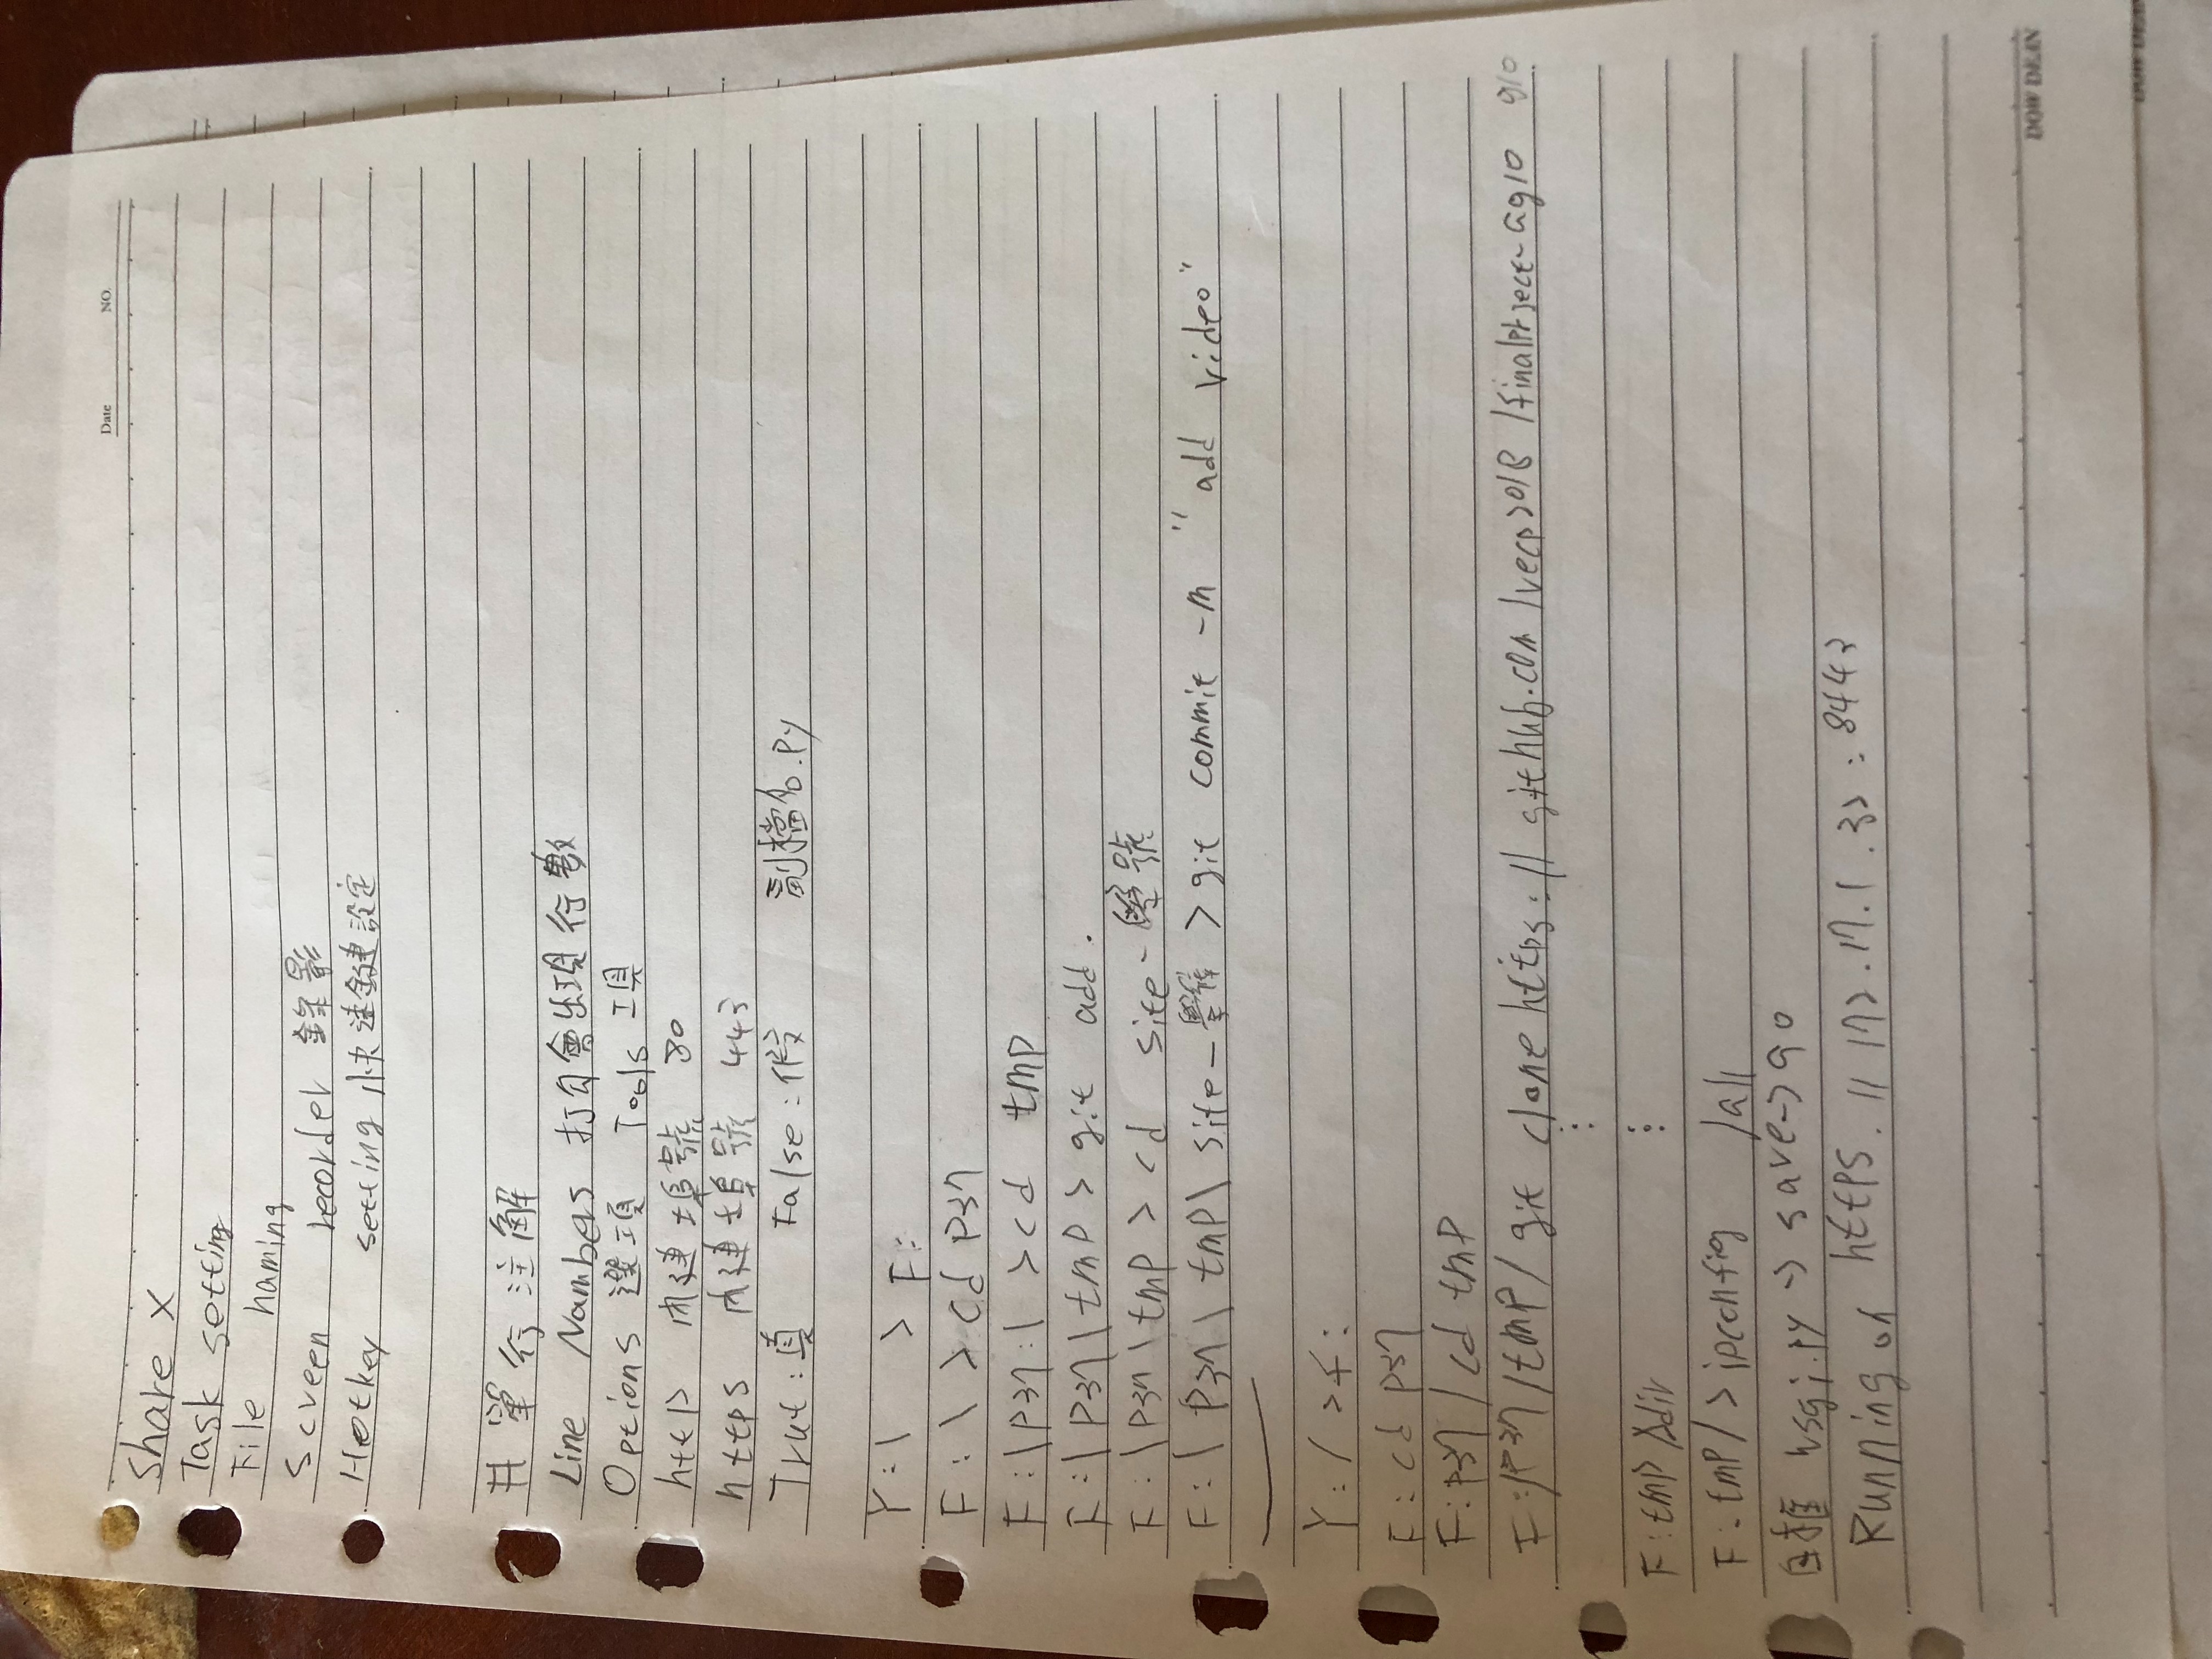 Date NO.
Share X
Task setting
File naming
Screen recorder 錄影
Hotkey setting 快速鍵設定
# 單行注解
Line Nambers 打勾會出現行數
Options 選項 Tools 工具
http 內建埠號 80
https 內建埠號 443
True:真 False:假 副檔名.py
Y:\ > F:
F:\ > cd P37
F:\P37:\ >cd tmp
F:\P37\tmp > git add .
F:\P37\tmp > cd site-學號
F:\P37\tmp\site- >git commit -m "add video"
Y:/ >f:
F: cd p37
F:p37/cd tmp
F:/P37/tmp/ git clone https://github.com/vecp2018/finalproject-ag10 g10
F:tmp />dir
F:tmp/>ipconfig /all
wsgi.py → save→go
Running on https://172.17.1.32:8443
DOW DEAN
DOW DEAN